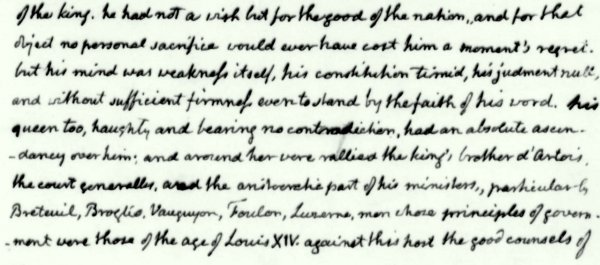 of the king. he had not a wish but for the good of the nation, and for that
object no personal sacrifice would ever have cost him a moment's regret.
but his mind was weakness itself, his constitution timid, his judgment null,
and without sufficient firmness even to stand by the faith of his word. his
queen too, haughty and bearing no contradiction, had an absolute ascen-
-dancy over him; and around her were rallied the king's brother d'Artois,
the court generally, and the aristocratic part of his ministers, particularly
Breteuil, Broglio, Vauguyon, Foulon, Luzerne, men whose principles of govern-
-ment were those of the age of Louis XIV. against this host the good counsels of